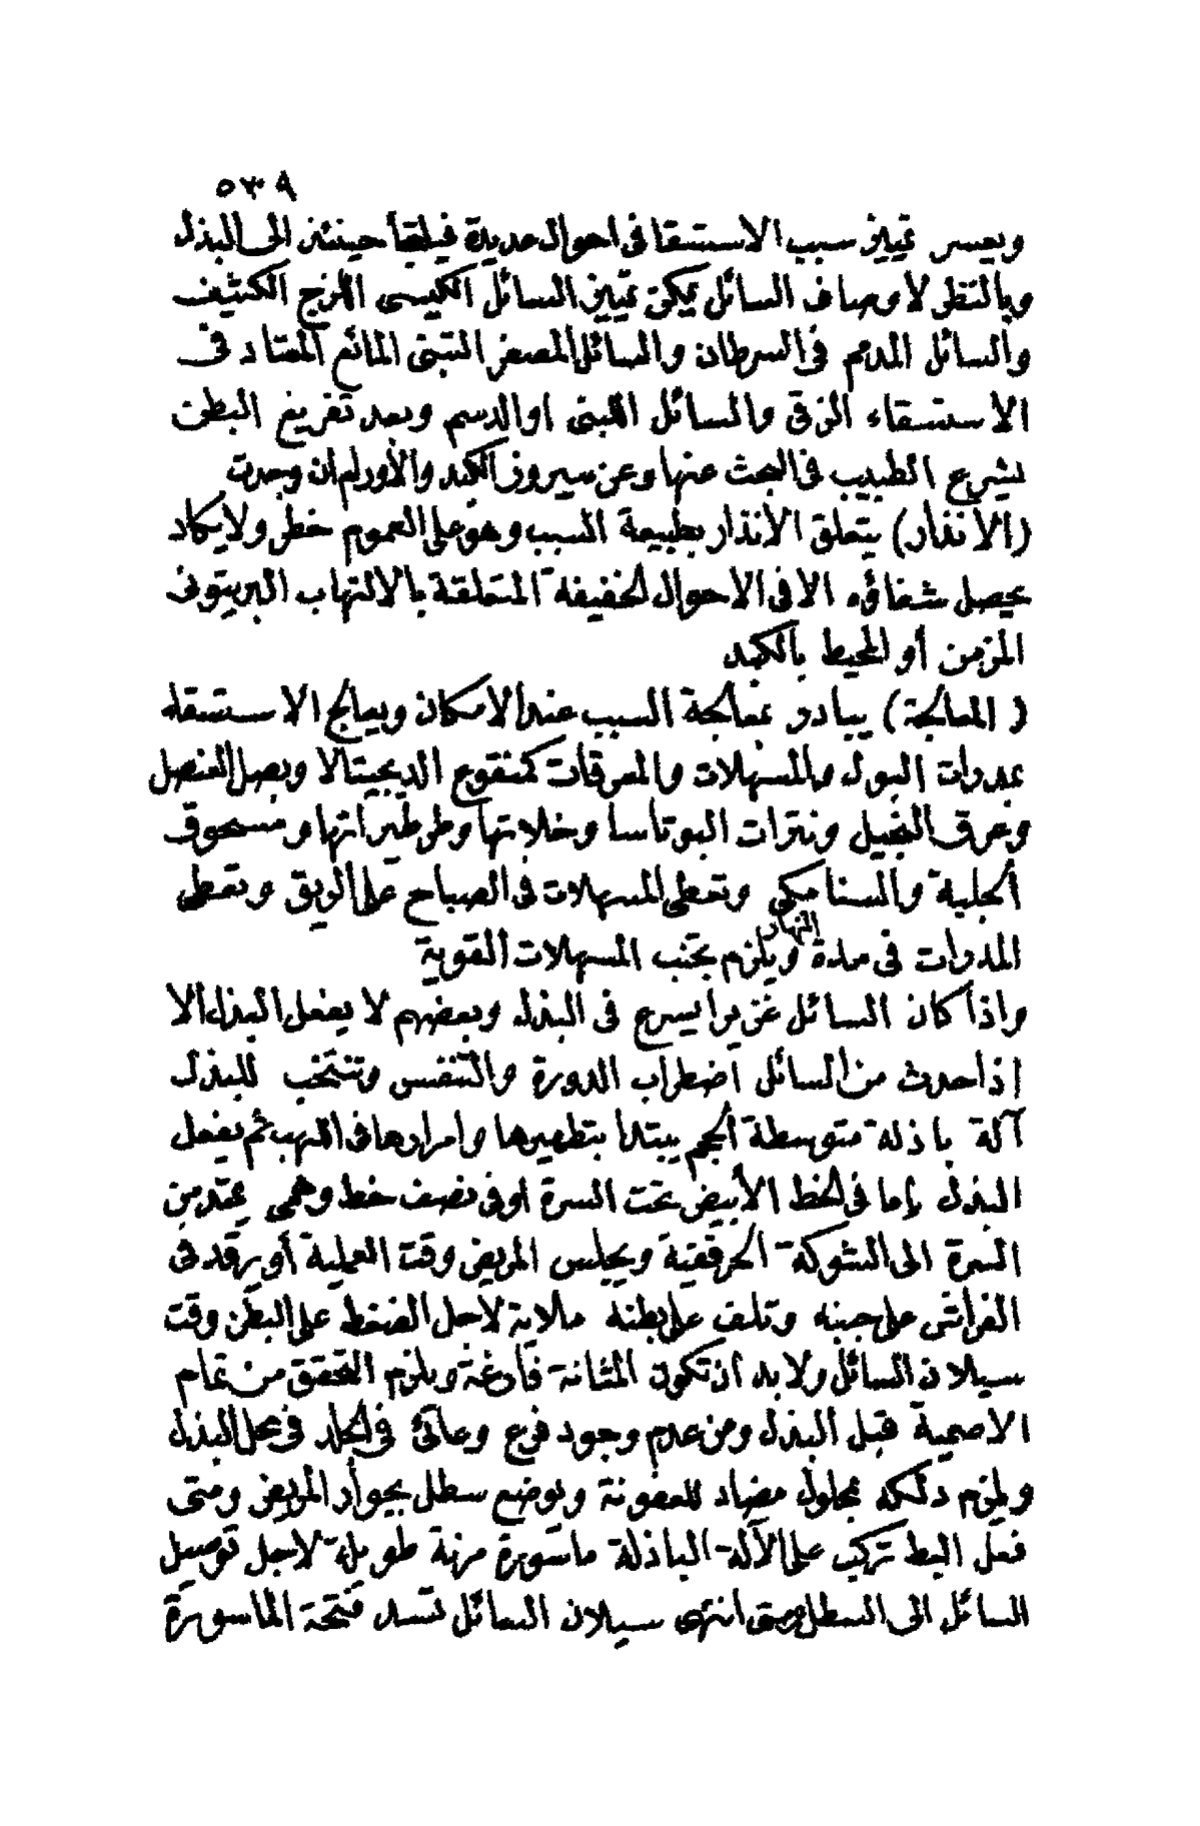 ٥٣٩
ويعسر تمييز سبب الاستسقا فى احوال عديدة فيلتجأ حينئذ الى البذل
وبالنظر لاوصاف السائل يمكن تمييز السائل الكيسى اللزج الكثيف
والسائل المدمم فى السرطان والسائل المصفر التبنى المائع المعتاد فى
الاستسقاء الزقى والسائل اللبنى او الدسم وبعد تفريغ البطن
يشرع الطبيب فى البحث عنها وعن سيروز الكبد والأورام ان وجدت
(الانذار) يتعلق الانذار بطبيعة السبب وهو على العموم خطر ولا يكاد
يحصل شفاؤه الا فى الاحوال الخفيفة المتعلقة بالالتهاب البريتونى
المزمن أو المحيط بالكبد
(المعالجة) يبادر بمعالجة السبب عند الامكان ويعالج الاستسقاء
بمدرات البول والمسهلات والمعرقات كمنقوع الديجيتالا وبصل العنصل
وعرق النجيل ونترات البوتاسا وخلاتها وطرطيراتها ومسحوق
الجلبة والسنا مكى وتعطى المسهلات فى الصباح على الريق وتعطى
المدرات فى مدة النهار ويلزم تجنب المسهلات القوية
واذا كان السائل غزيرا يسرع فى البذل وبعضهم لا يفعل البذل الا
اذا حدث من السائل اضطراب الدورة والتنفس وتنتخب للبذل
آلة باذلة متوسطة الحجم يبتدأ بتطهيرها وامرارها فى اللهب ثم يفعل
البذل إما فى الخط الأبيض تحت السرة او فى نصف خط وهمى يمتد من
السرة الى الشوكة الحرقفية ويجلس المريض وقت العملية أو يرقد فى
الفراش على جنبه وتلف على بطنه ملاية لأجل الضغط على البطن وقت
سيلان السائل ولا بد ان تكون المثانة فارغة ويلزم التحقق من تمام
الاصمية قبل البذل ومن عدم وجود فرع وعائى فى الجلد فى محل البذل
ويلزم دلكه بمحلول مضاد للعفونة ويوضع سطل بجوار المريض ومتى
فعل البط تركب على الآلة الباذلة ماسورة مرنة طويلة لاجل توصيل
السائل الى السطل ومتى انتهى سيلان السائل تسد فتحة الماسورة